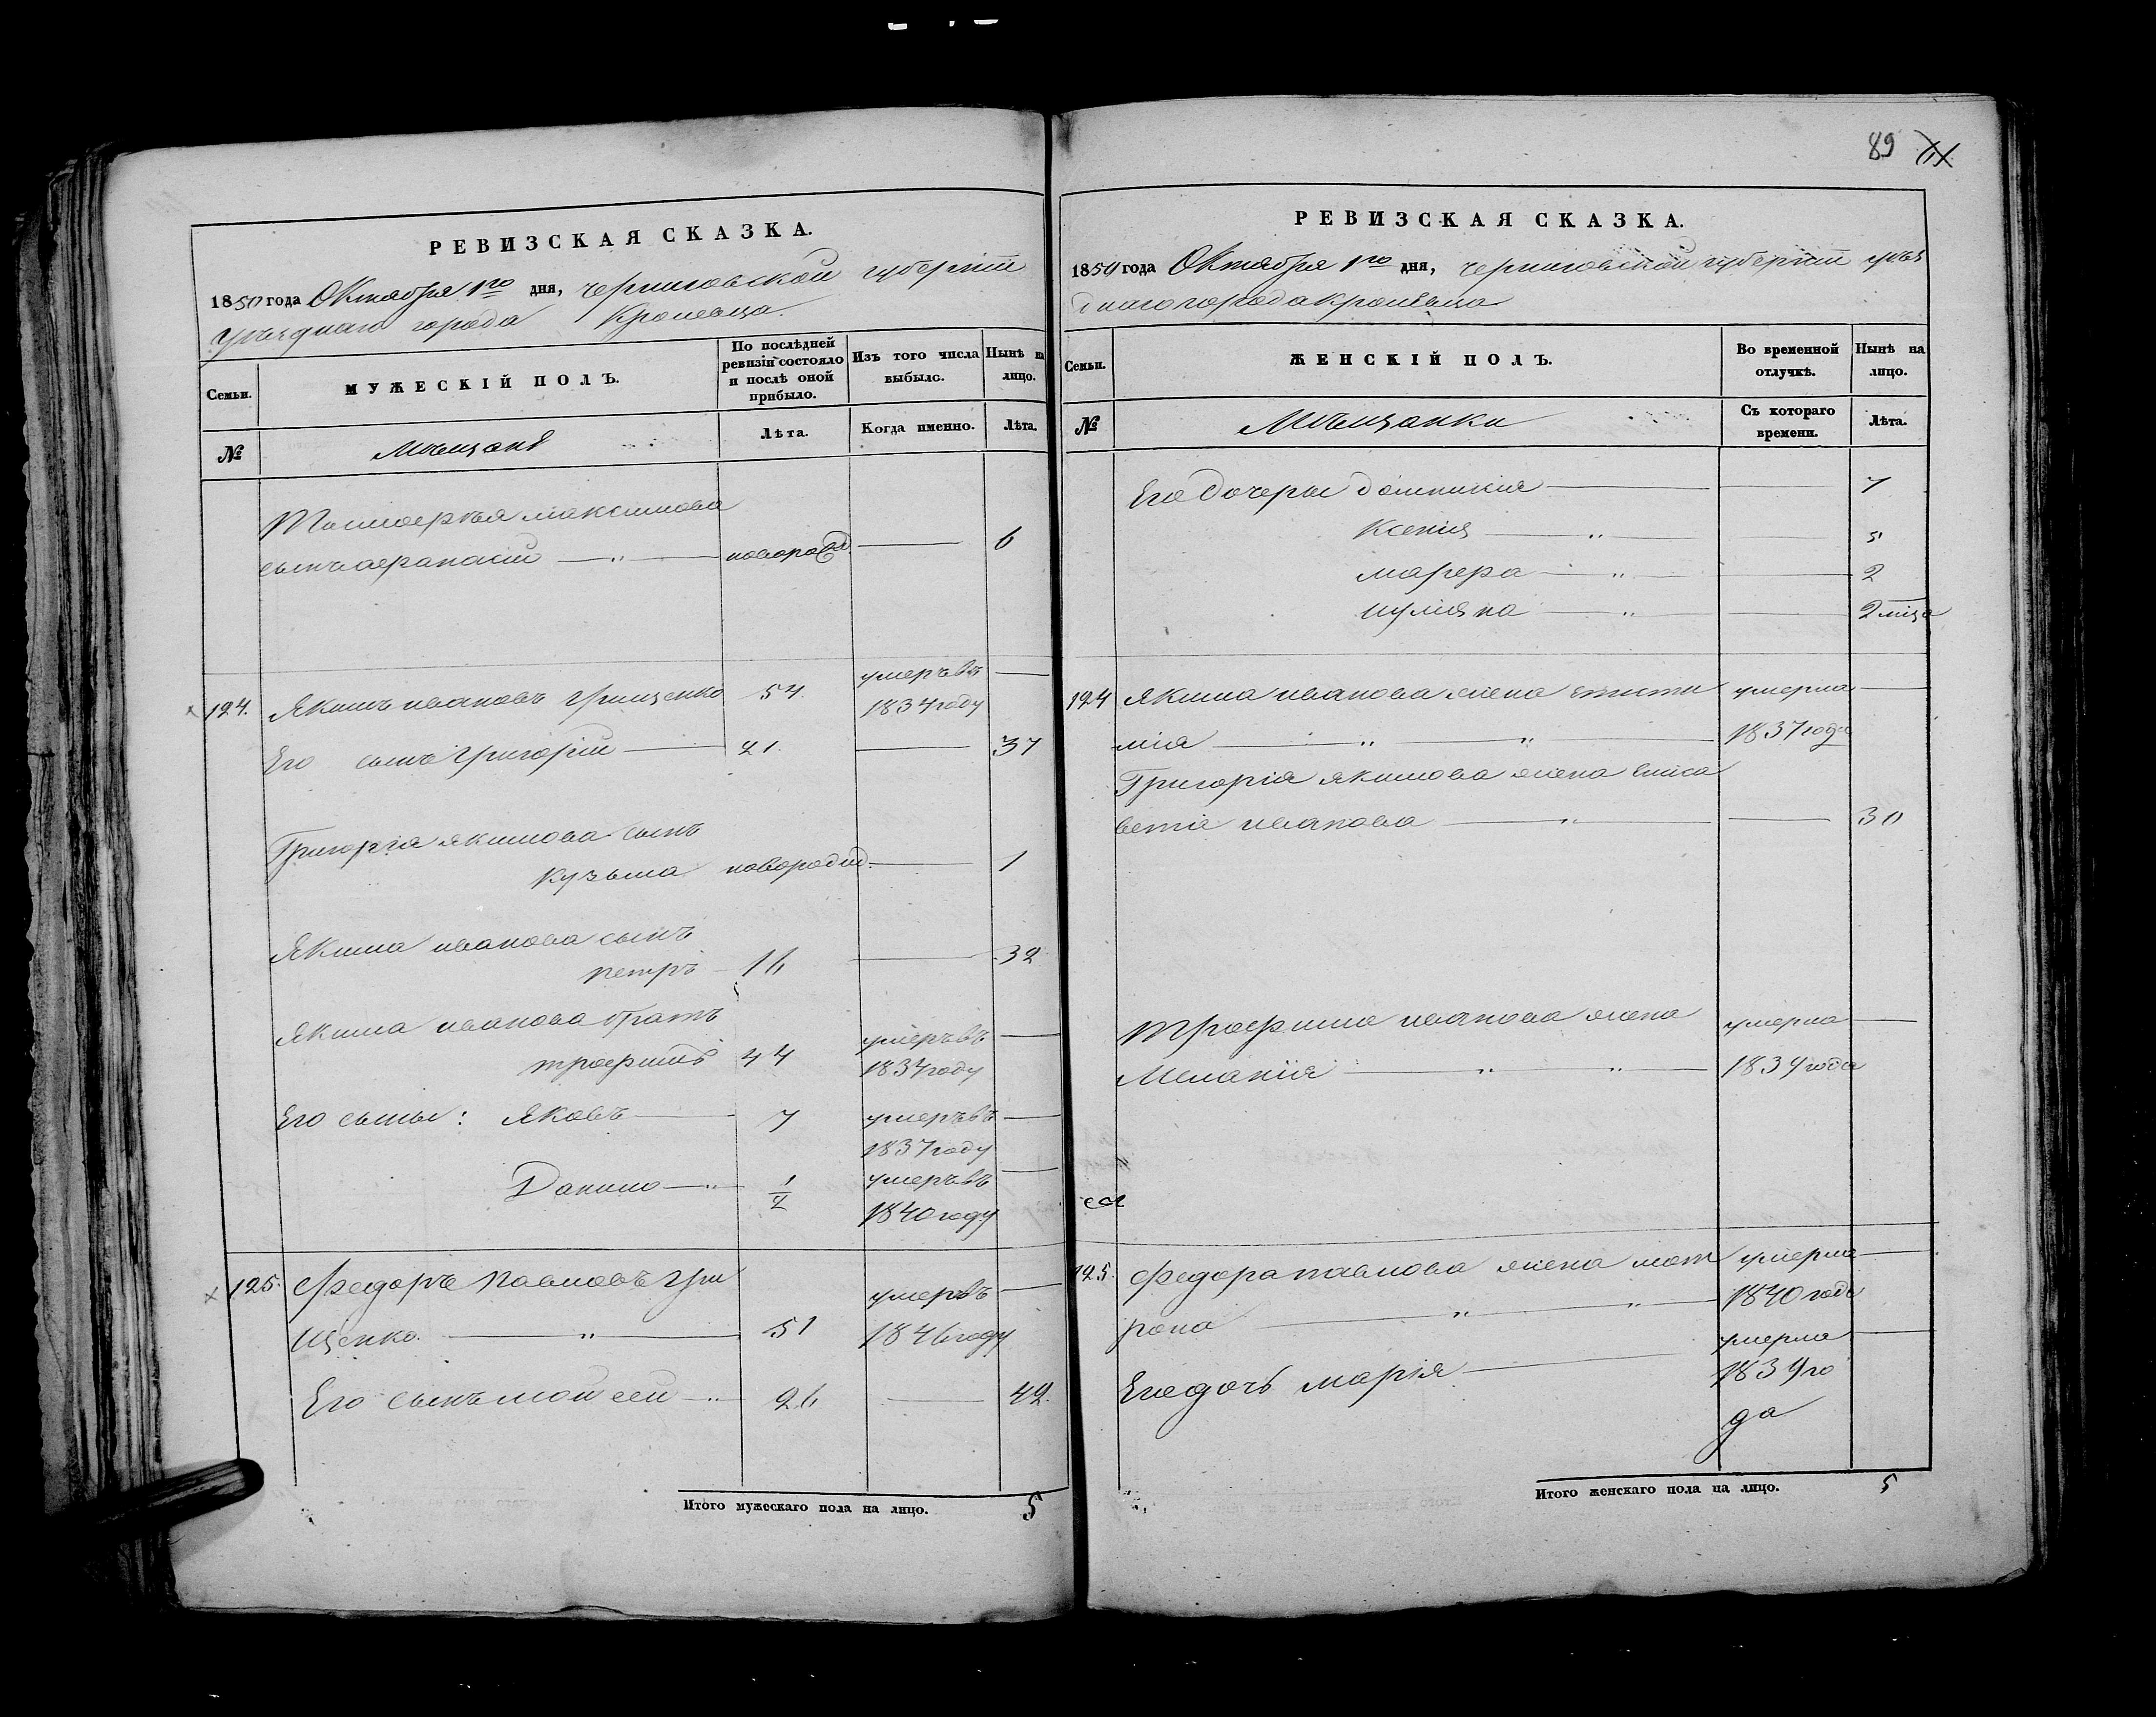 89
РЕВИЗСКАЯ СКАЗКА.
1850 года Октября 1го дня, черниговской губернiи
уѣзднаго города Кролевца.
Семьи.
МУЖЕСКIЙ ПОЛЪ.
По послѣдней ревизiи состояло и послѣ оной прибыло.
Изъ того числа выбыло.
Нынѣ на лицо.
№
Мѣщанѣ
Лѣта.
Когда именно.
Лѣта.
максимова
сынъ афанасiй — " — новорожд. — 6
124. Якимъ ивановъ Грищенко 54. умеръ въ 1834 году —
Его сынъ Григорiй — 21. — 37
Григорiя якимова сынъ
кузьма новорожд. — 1
Якима иванова сынъ
петръ — 16 — 32
Якима иванова братъ
трофимъ 44 умеръ въ 1834 году —
Его сыны: Яковъ — 7 умеръ въ 1837 году —
Данило — " — 1/2 умеръ въ 1840 году —
125. Федоръ Павловъ Гри
щенко. — " — 51 умеръ въ 1846 году —
Его сынъ мойсей — " 26 — 42.
Итого мужескаго пола на лицо. 5
РЕВИЗСКАЯ СКАЗКА.
1850 года Октября 1го дня, черниговской губернiи уѣз
днаго города кролевца
Семьи.
ЖЕНСКIЙ ПОЛЪ.
Во временной отлучкѣ.
Нынѣ на лицо.
№
Мѣщанки
Съ котораго времени.
Лѣта.
Его дочеры домникiя — — 7
Ксенiя — " — — 5
марфа — " — — 2
иулiяна — " — 2 мца
124 Якима иванова жена умерла —
мiя — " — " — 1837 года
Григорiя якимова жена елиса
ветiя иванова — " — — 30
Трофима иванова жена умерла —
Меланiя — " — " — 1839 года
125. Федора павлова жена мот умерла —
рона — " — " — 1840 года
Его дочь марiя — умерла 1839 го —
да
Итого женскаго пола на лицо. 5